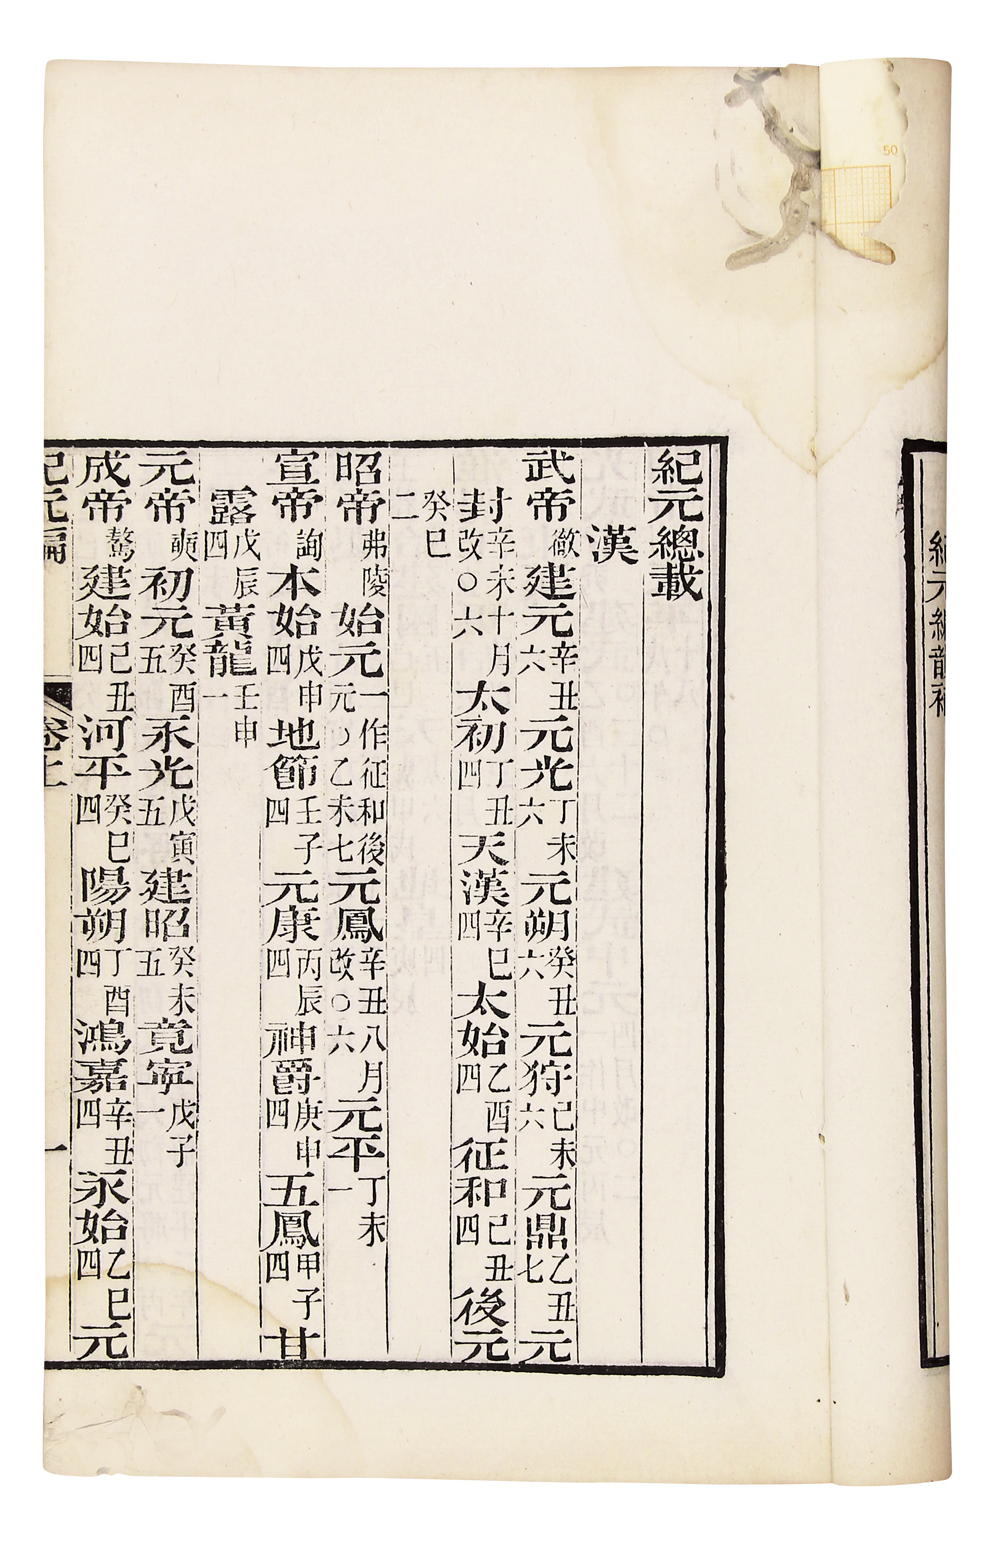 50
紀元編韻
紀元總載
漢
武帝徹建元辛丑六元光丁未六元朔癸丑六元狩己未六元鼎乙丑七元
封辛未十月改〇六太初丁丑四天漢辛巳四太始乙酉四征和己丑四後元
癸巳二
昭帝弗陵始元一作征和後元〇乙未七元鳳辛丑八月改〇六元平丁未一
宣帝詢本始戊申四地節壬子四元康丙辰四神爵庚申四五鳳甲子四甘
露戊辰四黃龍壬申一
元帝奭初元癸酉五永光戊寅五建昭癸未五竟寧戊子一
成帝驁建始己丑四河平癸巳四陽朔丁酉四鴻嘉辛丑四永始乙巳四元
紀元編 卷上 一